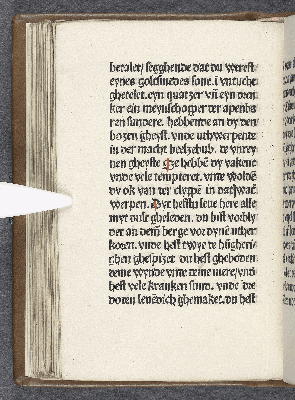 betalet/ segghende dat du werest
eynes goltsmedes sone. i vntucht
ghetelet. eyn quatzer vñ eyn drin
ker ein meynschoper der apenba
ren sundere. hebbende an dy den
bozen gheyst. vnde uthwerpende
in der macht beelzebub. de vnrey
nen gheyste Se hebbē dy vakene
vnde vele tempteret. vnde wolden
dy ok van der clyppē in dat
werpen. Dyt hefstu leue here alle
myt dult gheleden. du bist vorby
der an dem berge vor dyne uther
koren. vnde hest twye de hūgheri
ghen ghespiset. du hest gheboden
deme wynde vnde deme mere/ vnd
hest vele kranken sunt. vnde de
doden leuēdich ghemaket. du hest